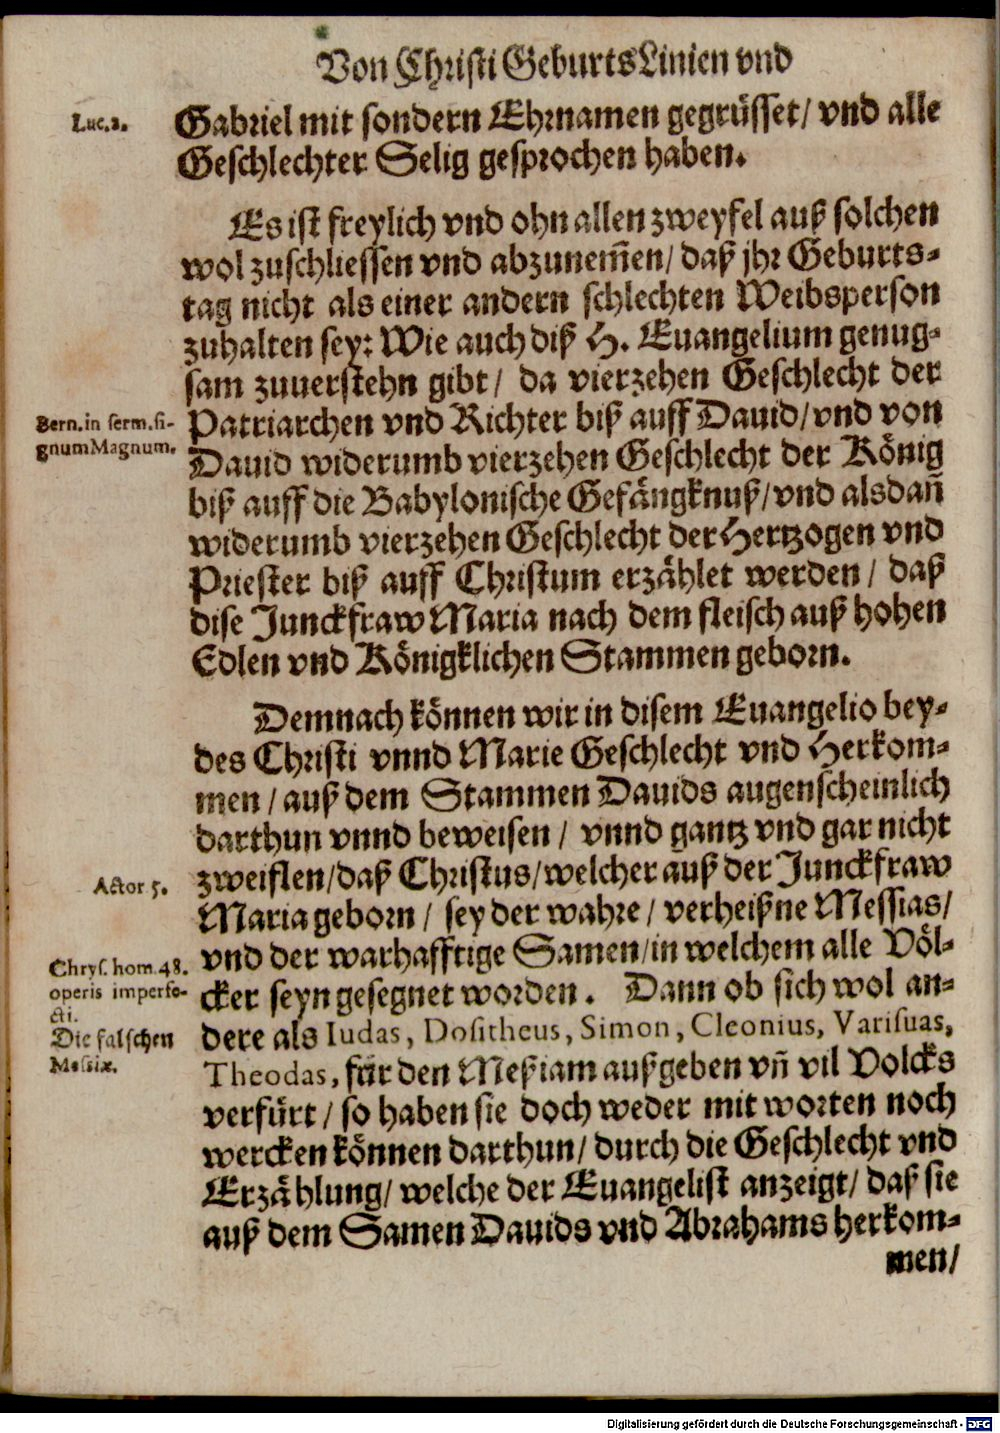 Von Christi Geburts Linien vnd
Luc. 2.
Gabriel mit sondern Ehrnamen gegrüsset/ vnd alle
Geschlechter Selig gesprochen haben.
Es ist freylich vnd ohn allen zweyfel auß solchen
wol zuschliessen vnd abzunem̃en/ daß jhr Geburts-
tag nicht als einer andern schlechten Weibsperson
zuhalten sey: Wie auch diß H. Euangelium genug-
sam zuuerstehn gibt/ da vierzehen Geschlecht der
Bern. in serm. si-
gnum Magnum.
Patriarchen vnd Richter biß auff Dauid/ vnd von
Dauid widerumb vierzehen Geschlecht der König
biß auff die Babylonische Gefängknuß/ vnd alsdañ
widerumb vierzehen Geschlecht der Hertzogen vnd
Priester biß auff Christum erzählet werden/ daß
dise Junckfraw Maria nach dem fleisch auß hohen
Edlen vnd Königklichen Stammen geborn.
Demnach können wir in disem Euangelio bey-
des Christi vnnd Marie Geschlecht vnd Herkom-
men/ auß dem Stammen Dauids augenscheinlich
darthun vnnd beweisen/ vnnd gantz vnd gar nicht
Actor 5.
zweiflen/ daß Christus/ welcher auß der Junckfraw
Maria geborn/ sey der wahre/ verheißne Messias/
Chrys. hom. 48.
operis imperfe-
cti.
Die falschen
Messiæ.
vnd der warhafftige Samen/ in welchem alle Völ-
cker seyn gesegnet worden. Dann ob sich wol an-
dere als Iudas, Dositheus, Simon, Cleonius, Varisuas,
Theodas, für den Meßiam außgeben vñ vil Volcks
verfürt/ so haben sie doch weder mit worten noch
wercken können darthun/ durch die Geschlecht vnd
Erzählung/ welche der Euangelist anzeigt/ daß sie
auß dem Samen Dauids vnd Abrahams herkom-
men/
Digitalisierung gefördert durch die Deutsche Forschungsgemeinschaft - DFG